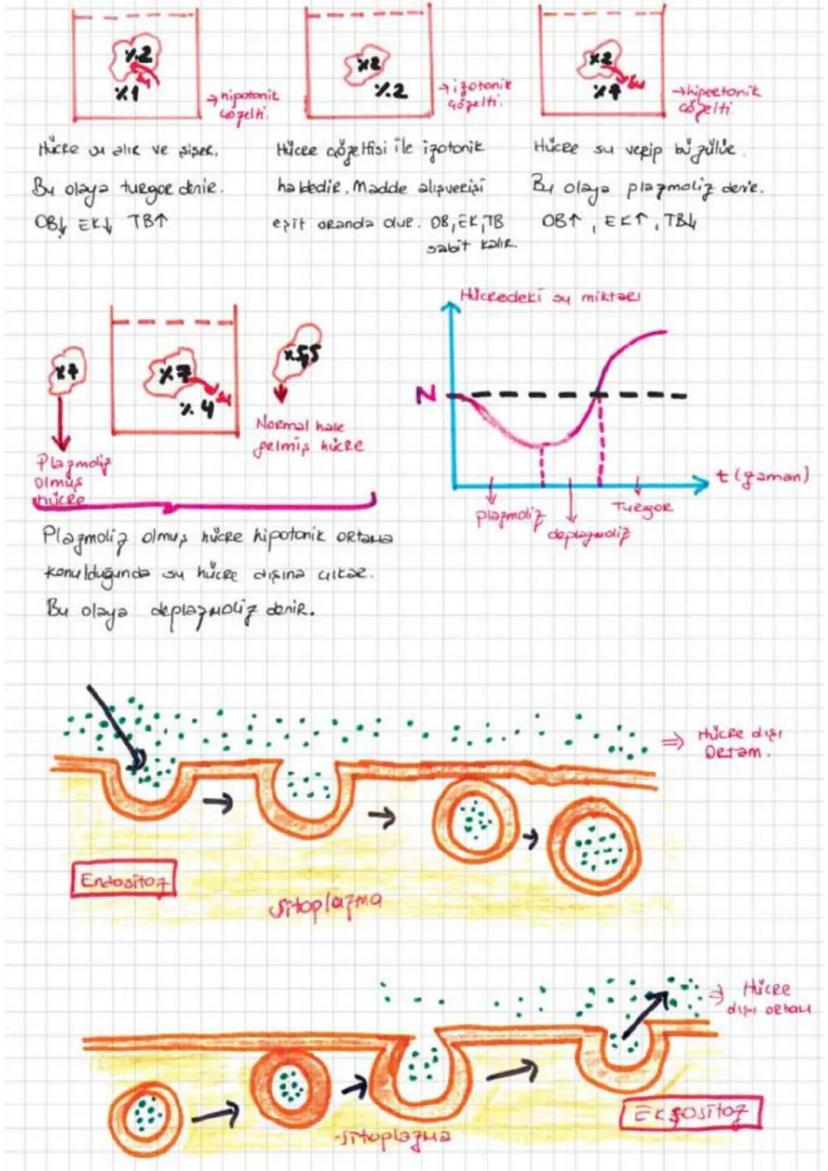 %2
su
%1
→ hipotonik
çözelti
%2
%2
→ izotonik
çözelti
%2
su
→ hipertonik
çözelti
Hücre su alır ve şişer.
Bu olaya turgor denir.
OB↓ EK↓ TB↑
Hücre çözeltisi ile izotonik
haldedir. Madde alışverişi
eşit oranda olur. OB, EK, TB
sabit kalır
Hücre su verip büzülür.
Bu olaya plazmoliz denir.
OB↑, EK↑, TB↓
%7
su
%4
%5,5
Plazmoliz
olmuş
hücre
Normal hale
gelmiş hücre
Plazmoliz olmuş hücre hipotonik ortama
konulduğunda su hücre dışına çıkar.
Bu olaya deplazmoliz denir.
Hücredeki su miktarı
N
t (zaman)
plazmoliz
deplazmoliz
Turgor
⇒ Hücre dışı
Ortam.
Endositoz
Sitoplazma
⇒ Hücre
dışı ortam
Sitoplazma
Ekzositoz